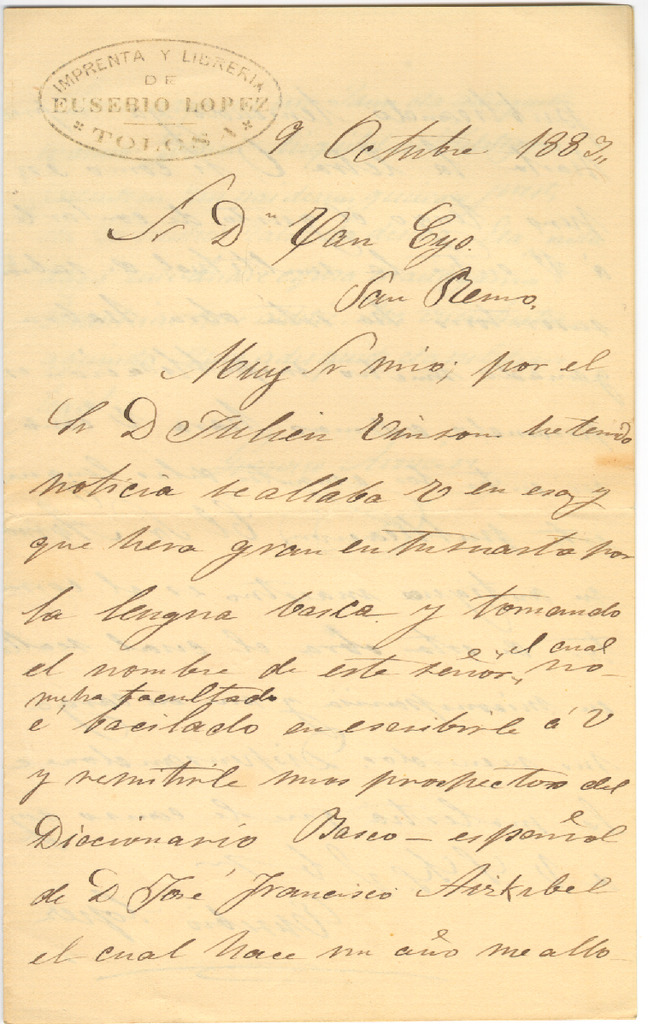 IMPRENTA Y LIBRERIA
DE
EUSEBIO LOPEZ
TOLOSA
9 Octubre 1883,,
Sr Dn Van Eys.
San Remo.
Muy Sr mio; por el
Sr D Julien Vinson he tenido
noticia se allaba V en esa, y
que hera gran entusiasta por
la lengua basca. y tomando
el nombre de este señor, el cual
me ha facultado no
é bacilado en escribirle á V
y remitirle unos prospectos del
Diccionario Basco-español
de D José Francisco Aizkibel
el cual hace un año me allo